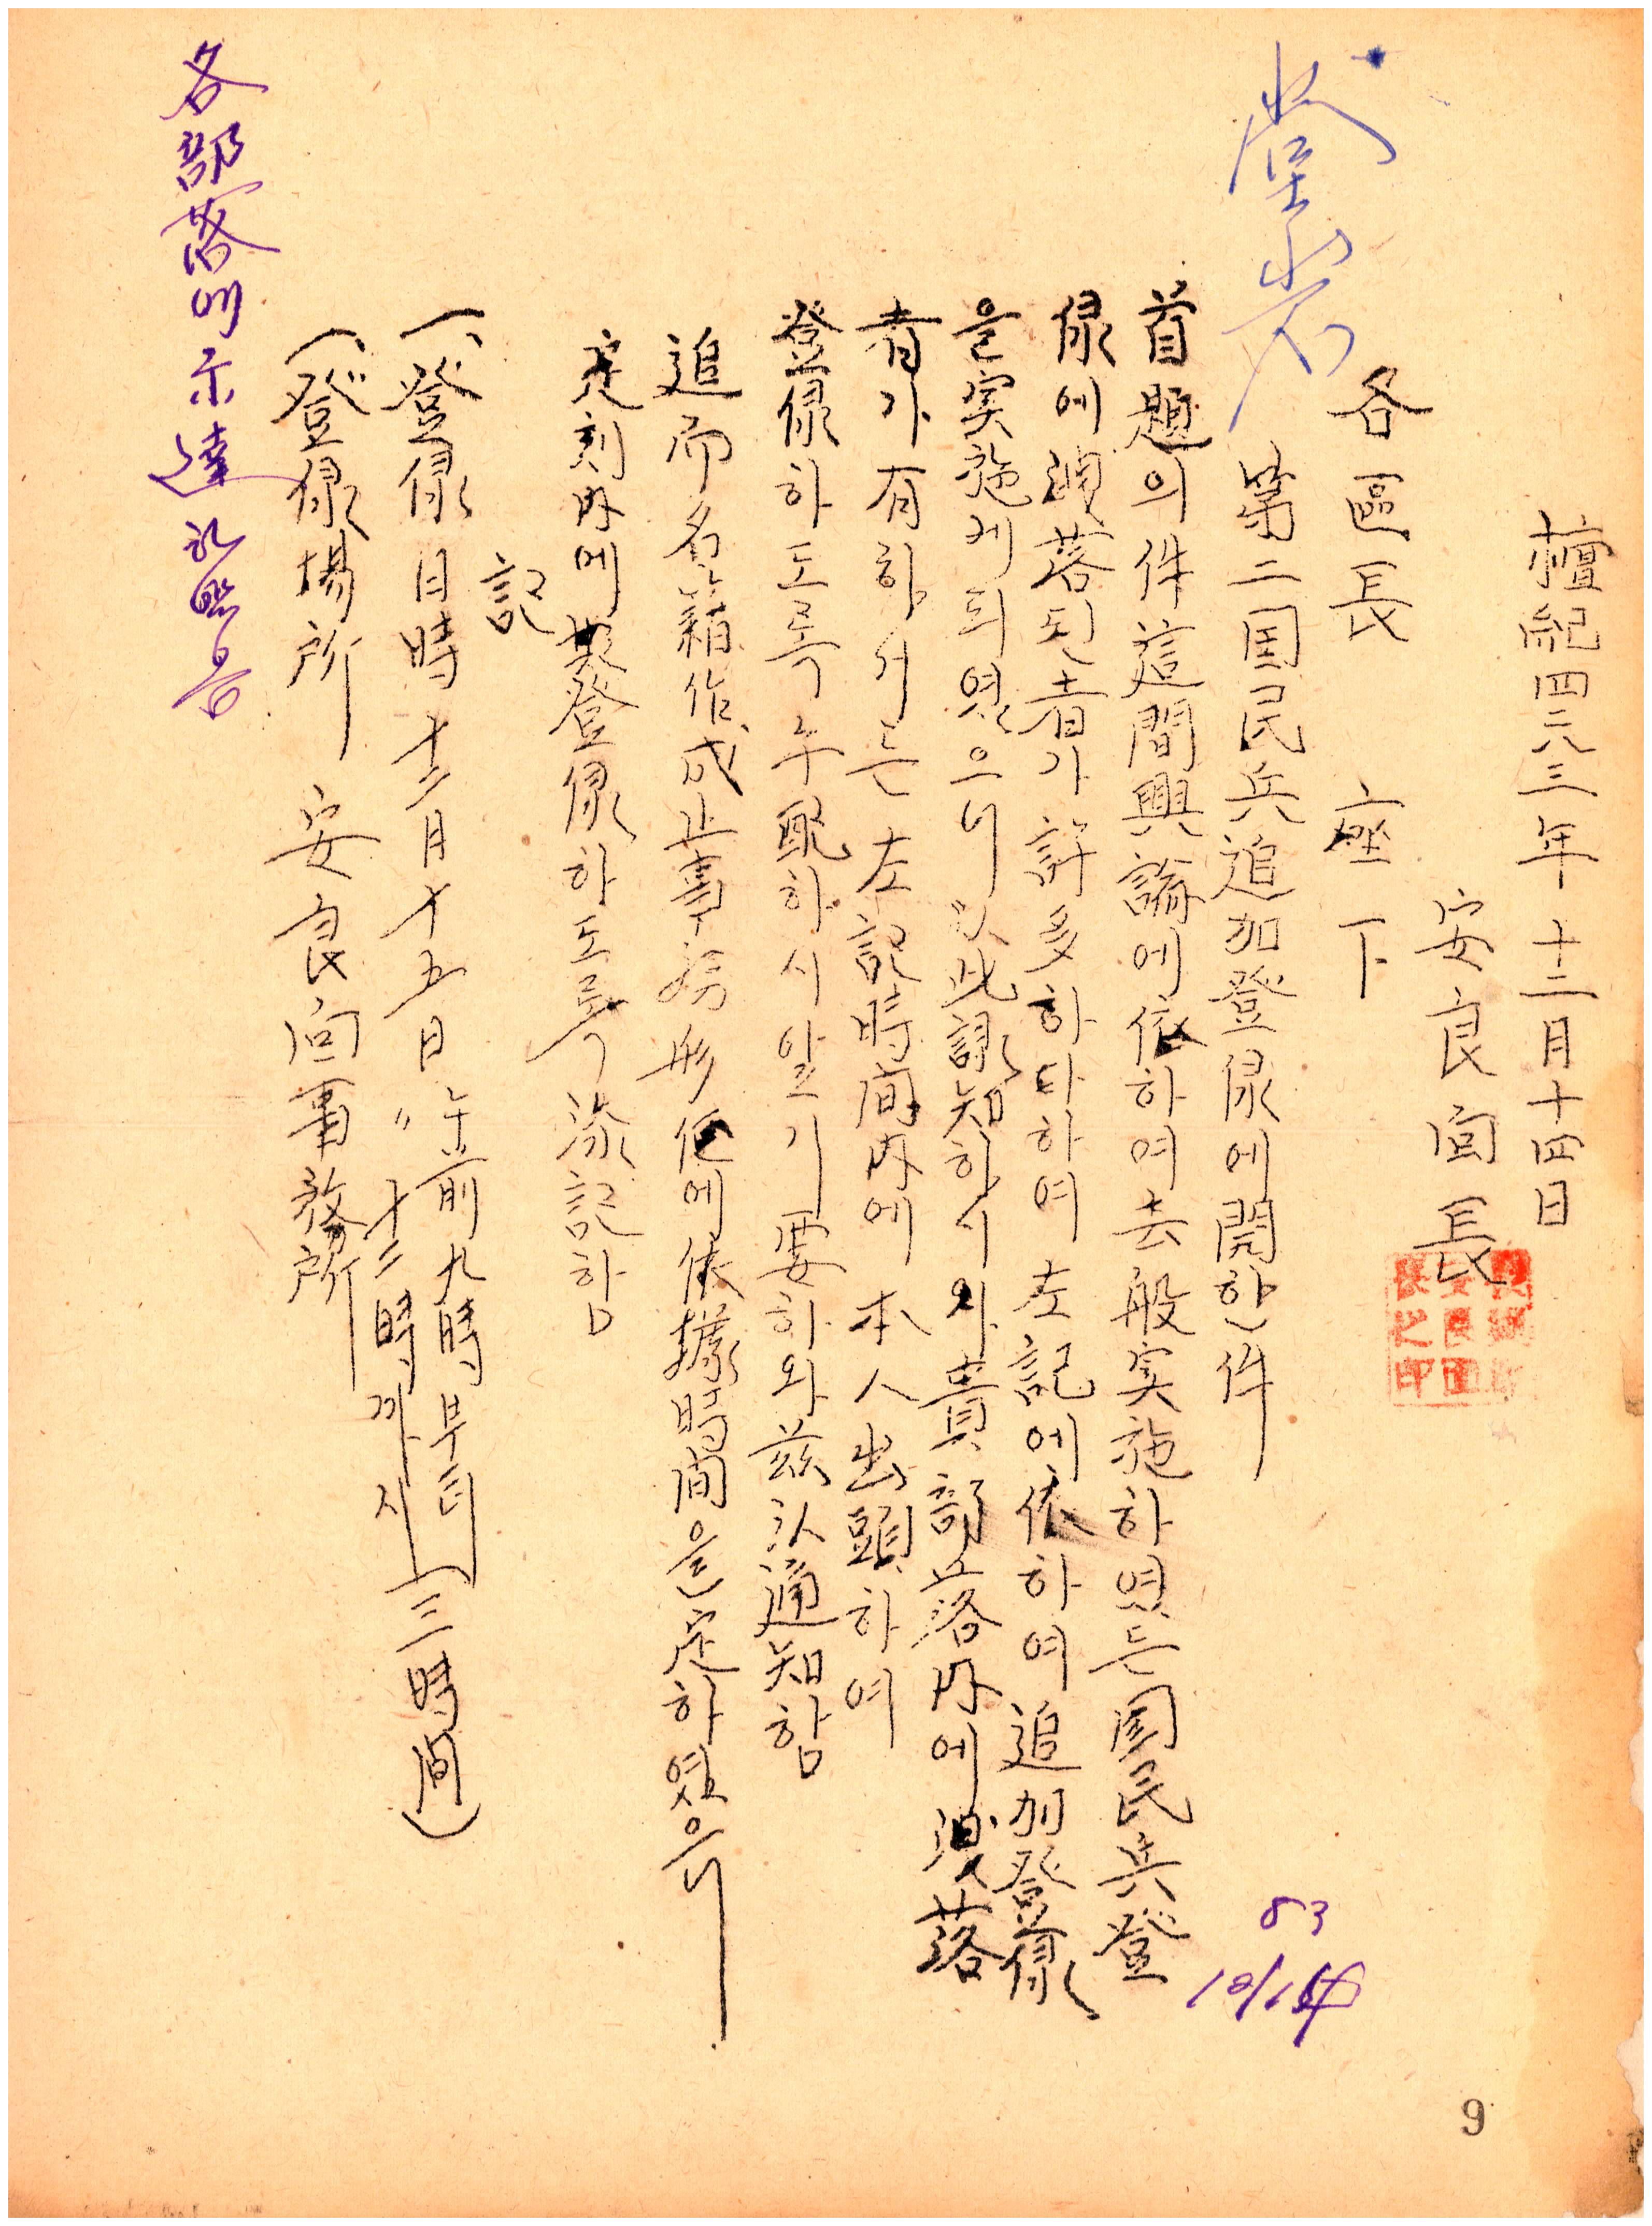 檀紀四二八三年十二月十四日
安良面長
各區長 座下
第二国民兵追加登錄에関한件
首題의件這間興論에依하여去般実施하였든国民兵登
錄에漏落된者가許多하다하여左記에依하여追加登錄
을実施케되였으니以此諒知하시와貴部落内에漏落
者가有할시는左記時間内에本人出頭하여
登錄하도록手配하시압기要하와玆以通知함
追而名籍作成上事務形便에依據時間을定하였으니
定刻内에登錄하도록添記함
記
一、登錄日時 十二月十五日 午前九時부터
〃 十二時까지 (三時間)
一、登錄場所 安良面事務所
各部落에示達
83
12/14
9